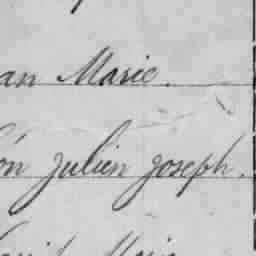 an Marie.
ón Julien Joseph.
Marie